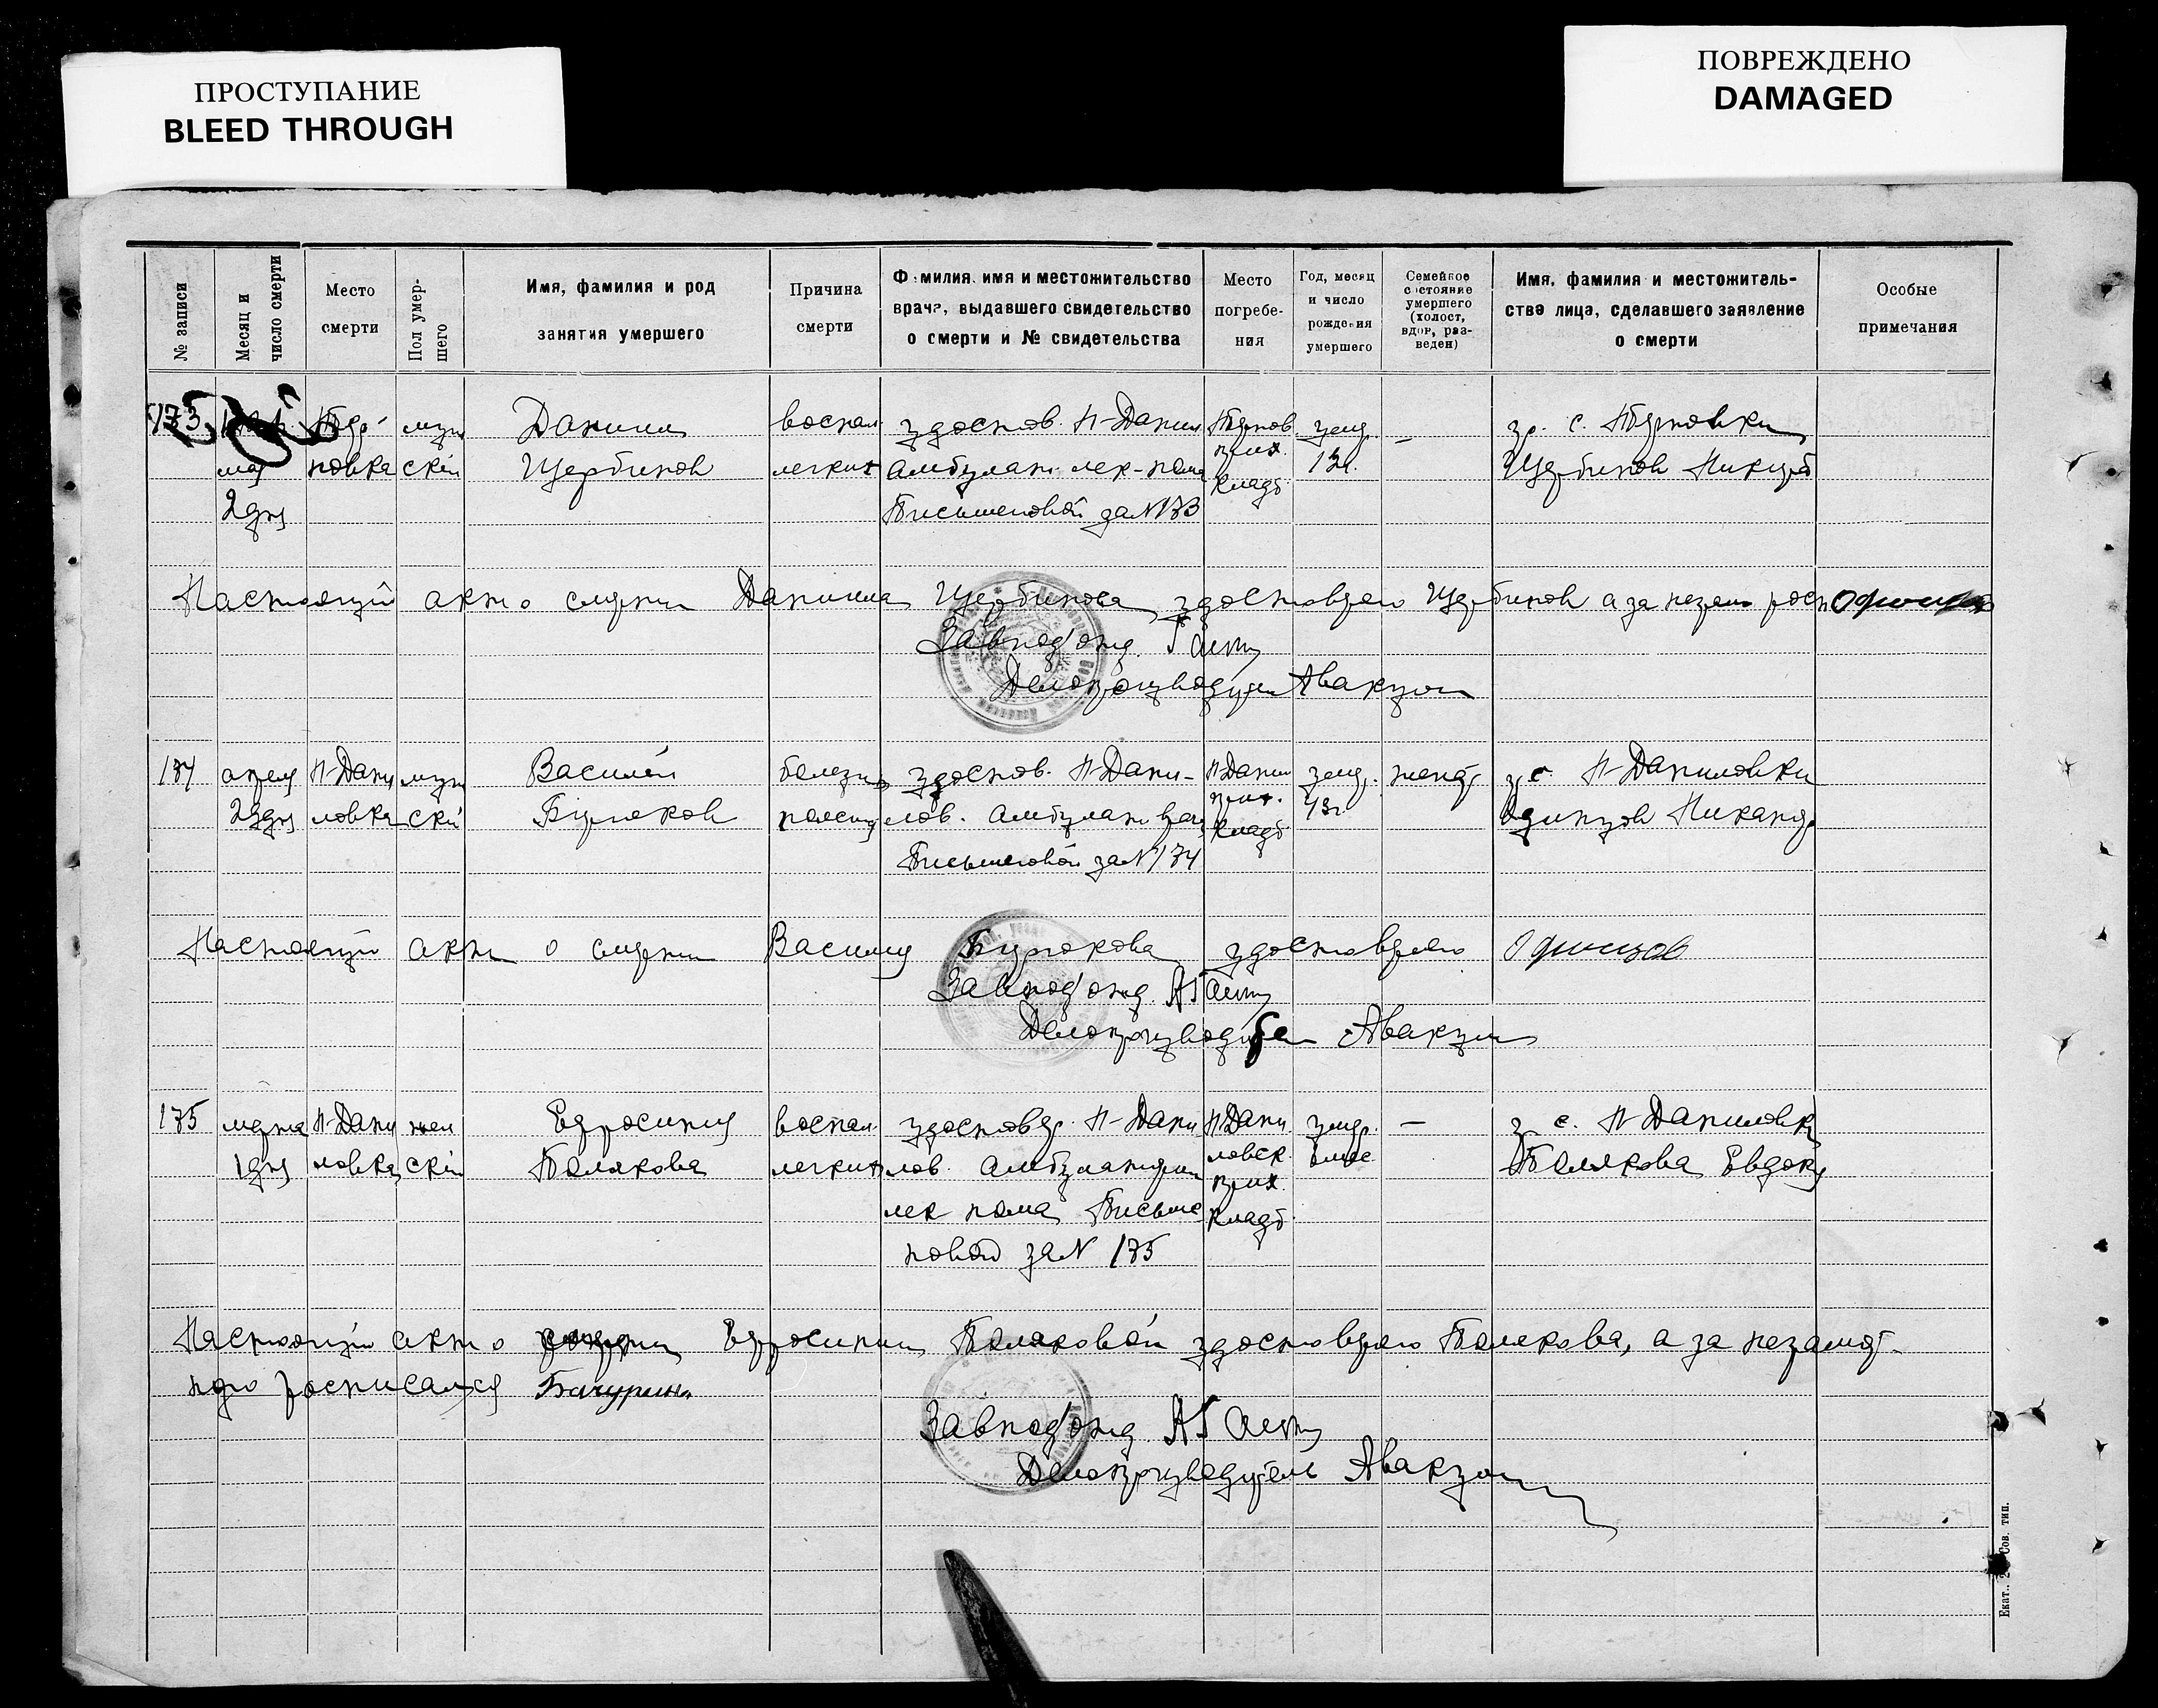 ПРОСТУПАНИЕ
BLEED THROUGH
ПОВРЕЖДЕНО
DAMAGED
№ записи
Месяц и
число смерти
Место
смерти
Пол умер-
шего
Имя, фамилия и род
занятия умершего
Причина
смерти
Фамилия, имя и местожительство
врача, выдавшего свидетельство
о смерти и № свидетельства
Место
погребе-
ния
Год, месяц
и число
рождения
умершего
Семейное
состояние
умершего
(холост,
вдов, раз-
веден)
Имя, фамилия и местожитель-
ство лица, сделавшего заявление
о смерти
Особые
примечания
173
мая
2 дня
новка
муж
ский
Данил
Щербинов
воспал.
легких
удостов. П-Данил
амбулат. лек-пома
Письменовой за № 173
кладб.
умер.
–
гр. с.
Щербинов
Настоящий акт о смерти Данила Щербинова удостоверяю Щербинов а за неграм росп Одинцов
Завподотд.
Делопроизводител Авакум
174
апреля
П-Дани
ловка
муж
ский
Василий
Бурлаков
болезнь
удостов. П-Дани-
лов. амбулат. врач
Письменовой за № 174
П-Данил
прих.
кладб.
умер.
женат
гр. с. П-Даниловки
Одинцов Никанор
Настоящий акт о смерти Василия удостоверяю Одинцов
Завподотд.
Делопроизводител Авакум
175
марта
1 дня
П-Дани
ловка
жен
ский
Ефросиния
Полякова
воспал.
легких
удостовер. П-Дани
лов. амбулатории
лек пома Письме
новой за № 175
П-Дани
ловск.
прих.
кладб.
умер.
–
гр. с. П-Даниловки
Полякова Евдокия
Настоящий акт о смерти Ефросинии Поляковой удостоверяю Полякова, а за неграмот-
ную росписался Бачурин
Завподотд.
Делопроизводитель Авакум
Екат. 2 Сов. тип.